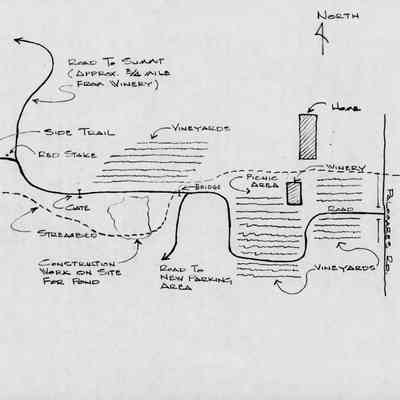 North
Road To Summit
(Approx. 3/4 mile
From Winery)
Home
Side Trail
Vineyards
Red Stake
Winery
Picnic
Area
Bridge
Gate
Road
Palomares Rd.
Streambed
Construction
Work on Site
For Pond
Road To
New Parking
Area
Vineyards